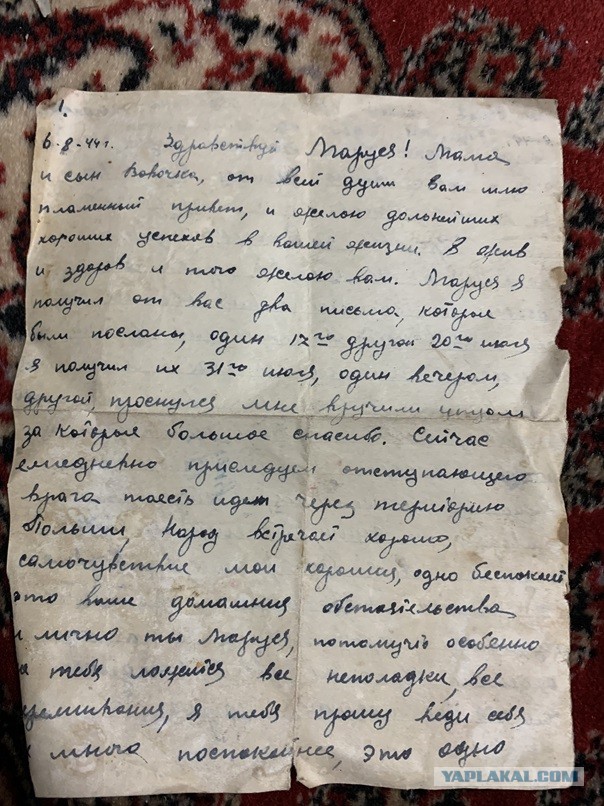 1.
6-8-44г. Здравствуй Маруся! Мама
и сын Вовочка, от всей души вам шлю
пламенный привет, и желою дольнейших
хороших успехов в вашей жизни. Я жив
и здоров и того желою вам. Маруся я
получил от вас два письма, которые
были посланы, один 17го другой 20го июля
я получил их 31го июля, один вечером,
другой, проснулся мне вручили
за которые большое спасибо. Сейчас
ежедневно приследуем отступающего
врага тоесть идем через територию
Польши, Народ встречает хорошо,
самочувствие мои хорошия, одно беспокоит
это ваше домашния обстаятельства
и лично ты Маруся, потомучто особенно
на тебя ложется все неполадки, все
я тебя прошу веди себя
много поспокойнее, это одно
YAPLAKAL.COM